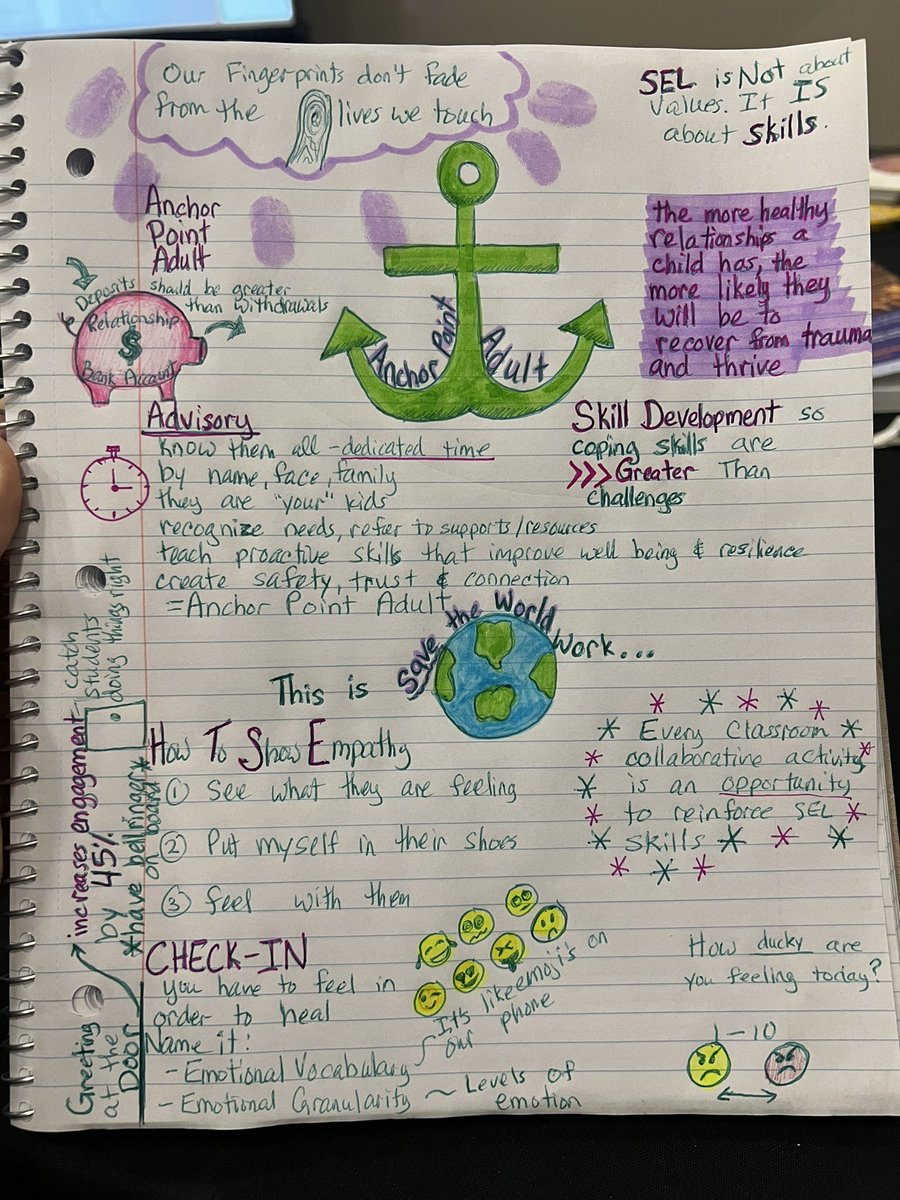 Our Fingerprints don't fade
from the lives we touch
SEL is Not about
values. It IS
about Skills.
Anchor
Point
Adult
Deposits should be greater
than withdrawals
Relationship
$
Bank Account
Anchor Point Adult
the more healthy
relationships a
child has, the
more likely they
will be to
recover from trauma
and thrive
Advisory
know them all - dedicated time
by name, face, family
they are "your" kids
recognize needs, refer to supports/resources
teach proactive skills that improve well being & resilience
create safety, trust & connection
= Anchor Point Adult
Skill Development so
coping skills are
>>> Greater Than
challenges
This is Save the World Work...
How To Show Empathy
① See what they are feeling
② Put myself in their shoes
③ feel with them
Every Classroom
collaborative activity
is an opportunity
to reinforce SEL
skills
Greeting
at the
Door
increases engagement
by 45%
*have bellringer*
on board
catch
students
doing things right
CHECK-IN
you have to feel in
order to heal
Name it!
- Emotional Vocabulary
- Emotional Granularity ~ Levels of
emotion
It's like emoji's on
our phone
How ducky are
you feeling today?
1-10